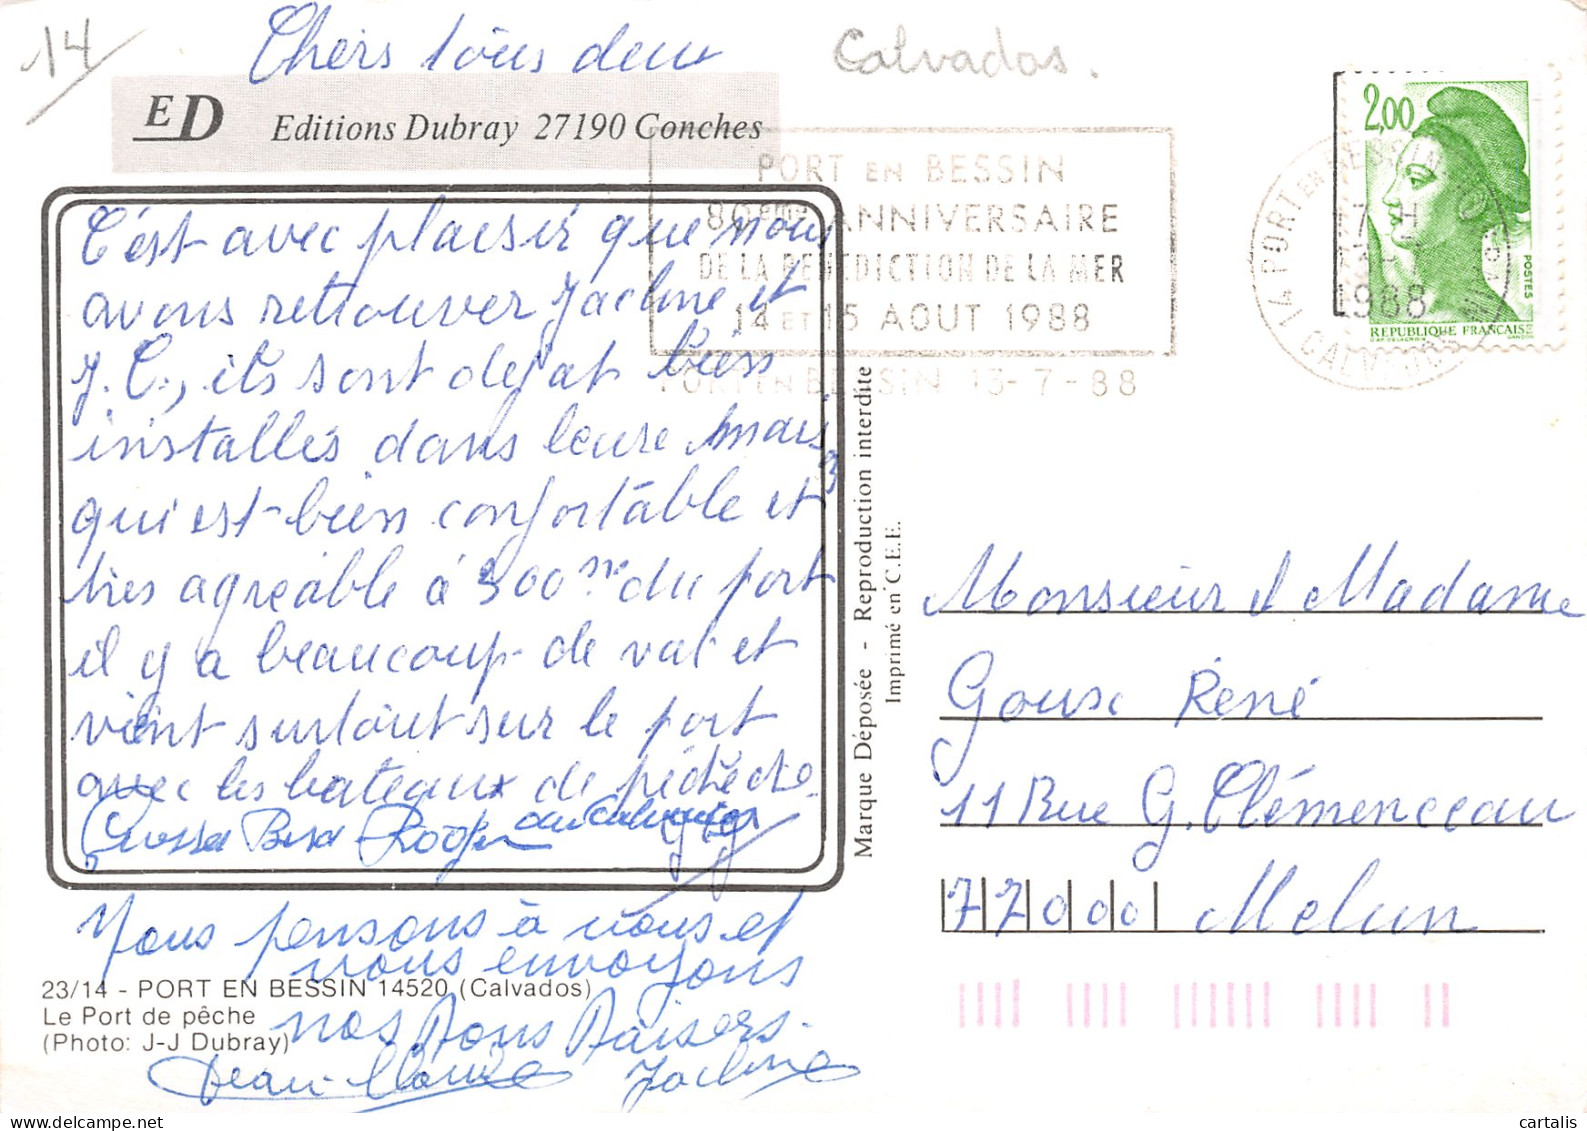 14
Chers tous deux
Calvados.
ED Editions Dubray 27190 Conches
PORT EN BESSIN
80ème ANNIVERSAIRE
DE LA BENEDICTION DE LA MER
14 ET 15 AOUT 1988
PORT EN BESSIN 13-7-88
2,00
POSTES
REPUBLIQUE FRANCAISE
D'AP. DELACROIX GANDON
14 PORT EN BESSIN
17 H
1988
CALVADOS
C'est avec plaisir que nous
avons retrouver Jacline et
J. C., ils sont dejat bien
installés dans leure
qui est bien confortable et
très agréable à 300 m du port
il y a beaucoup de val et
vient surtout sur le port
avec les bateaux de pêche
Bisa Roger
Nous pensons à vous et
vous envoyons
nos Bons Baisers.
Jean-Claude Jacline
23/14 - PORT EN BESSIN 14520 (Calvados)
Le Port de pêche
(Photo: J-J Dubray)
Marque Déposée - Reproduction interdite
Imprimé en C.E.E.
Monsieur et Madame
Goux René
11 Rue G. Clémenceau
77000 Melun
cartalis